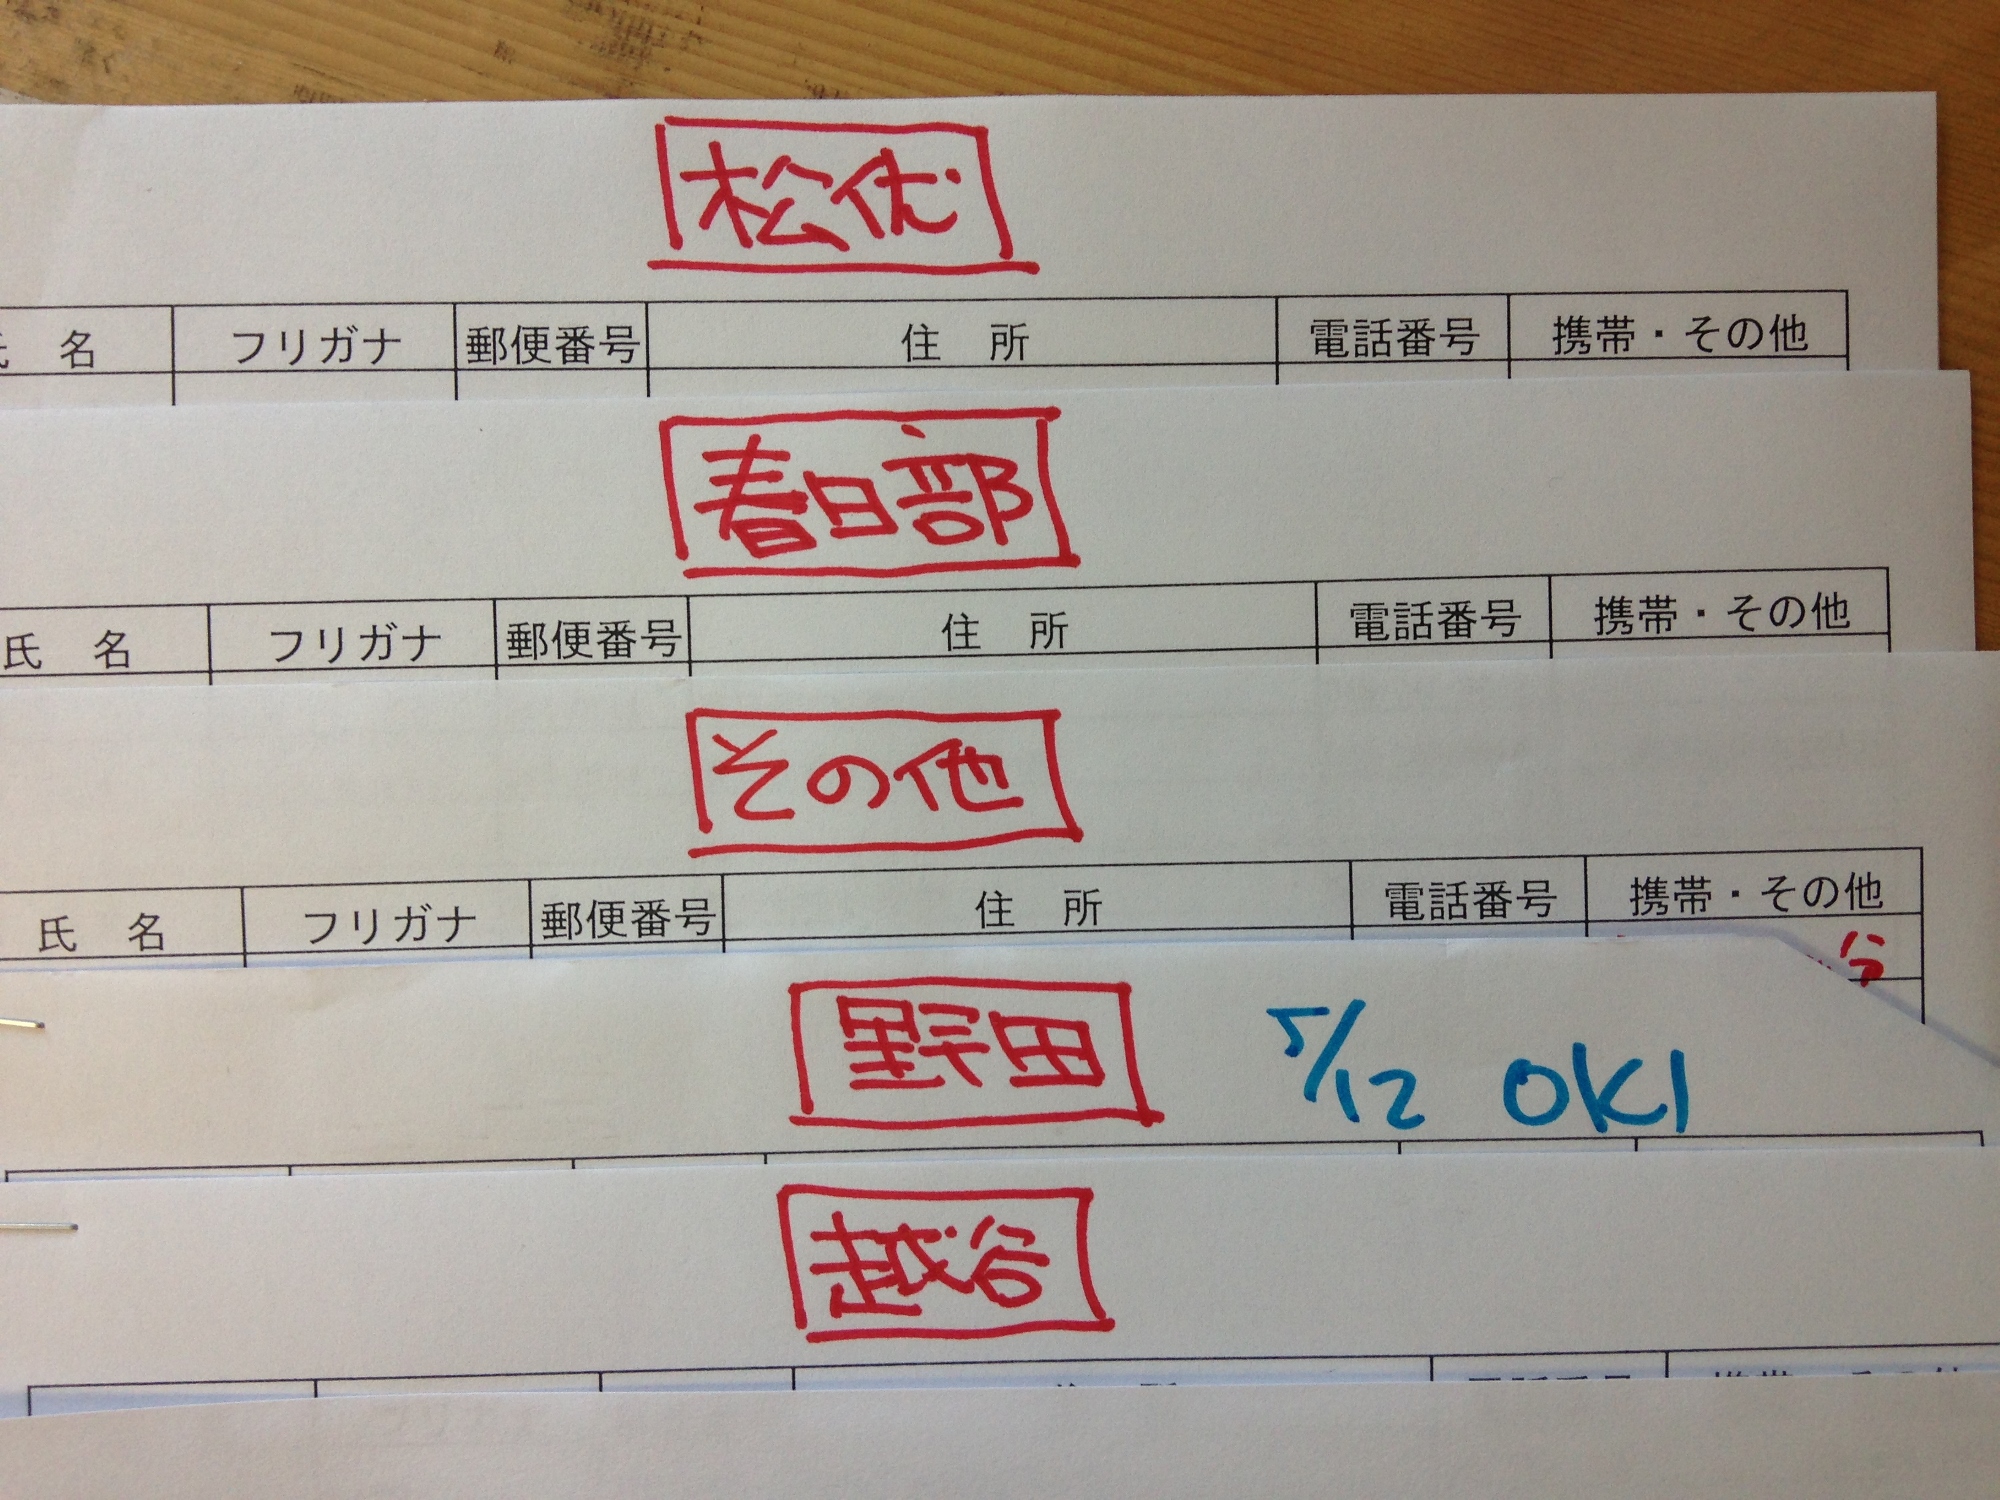 松伏
氏 名 フリガナ 郵便番号 住 所 電話番号 携帯・その他
春日部
氏 名 フリガナ 郵便番号 住 所 電話番号 携帯・その他
その他
氏 名 フリガナ 郵便番号 住 所 電話番号 携帯・その他
野田 5/12 OKI
越谷